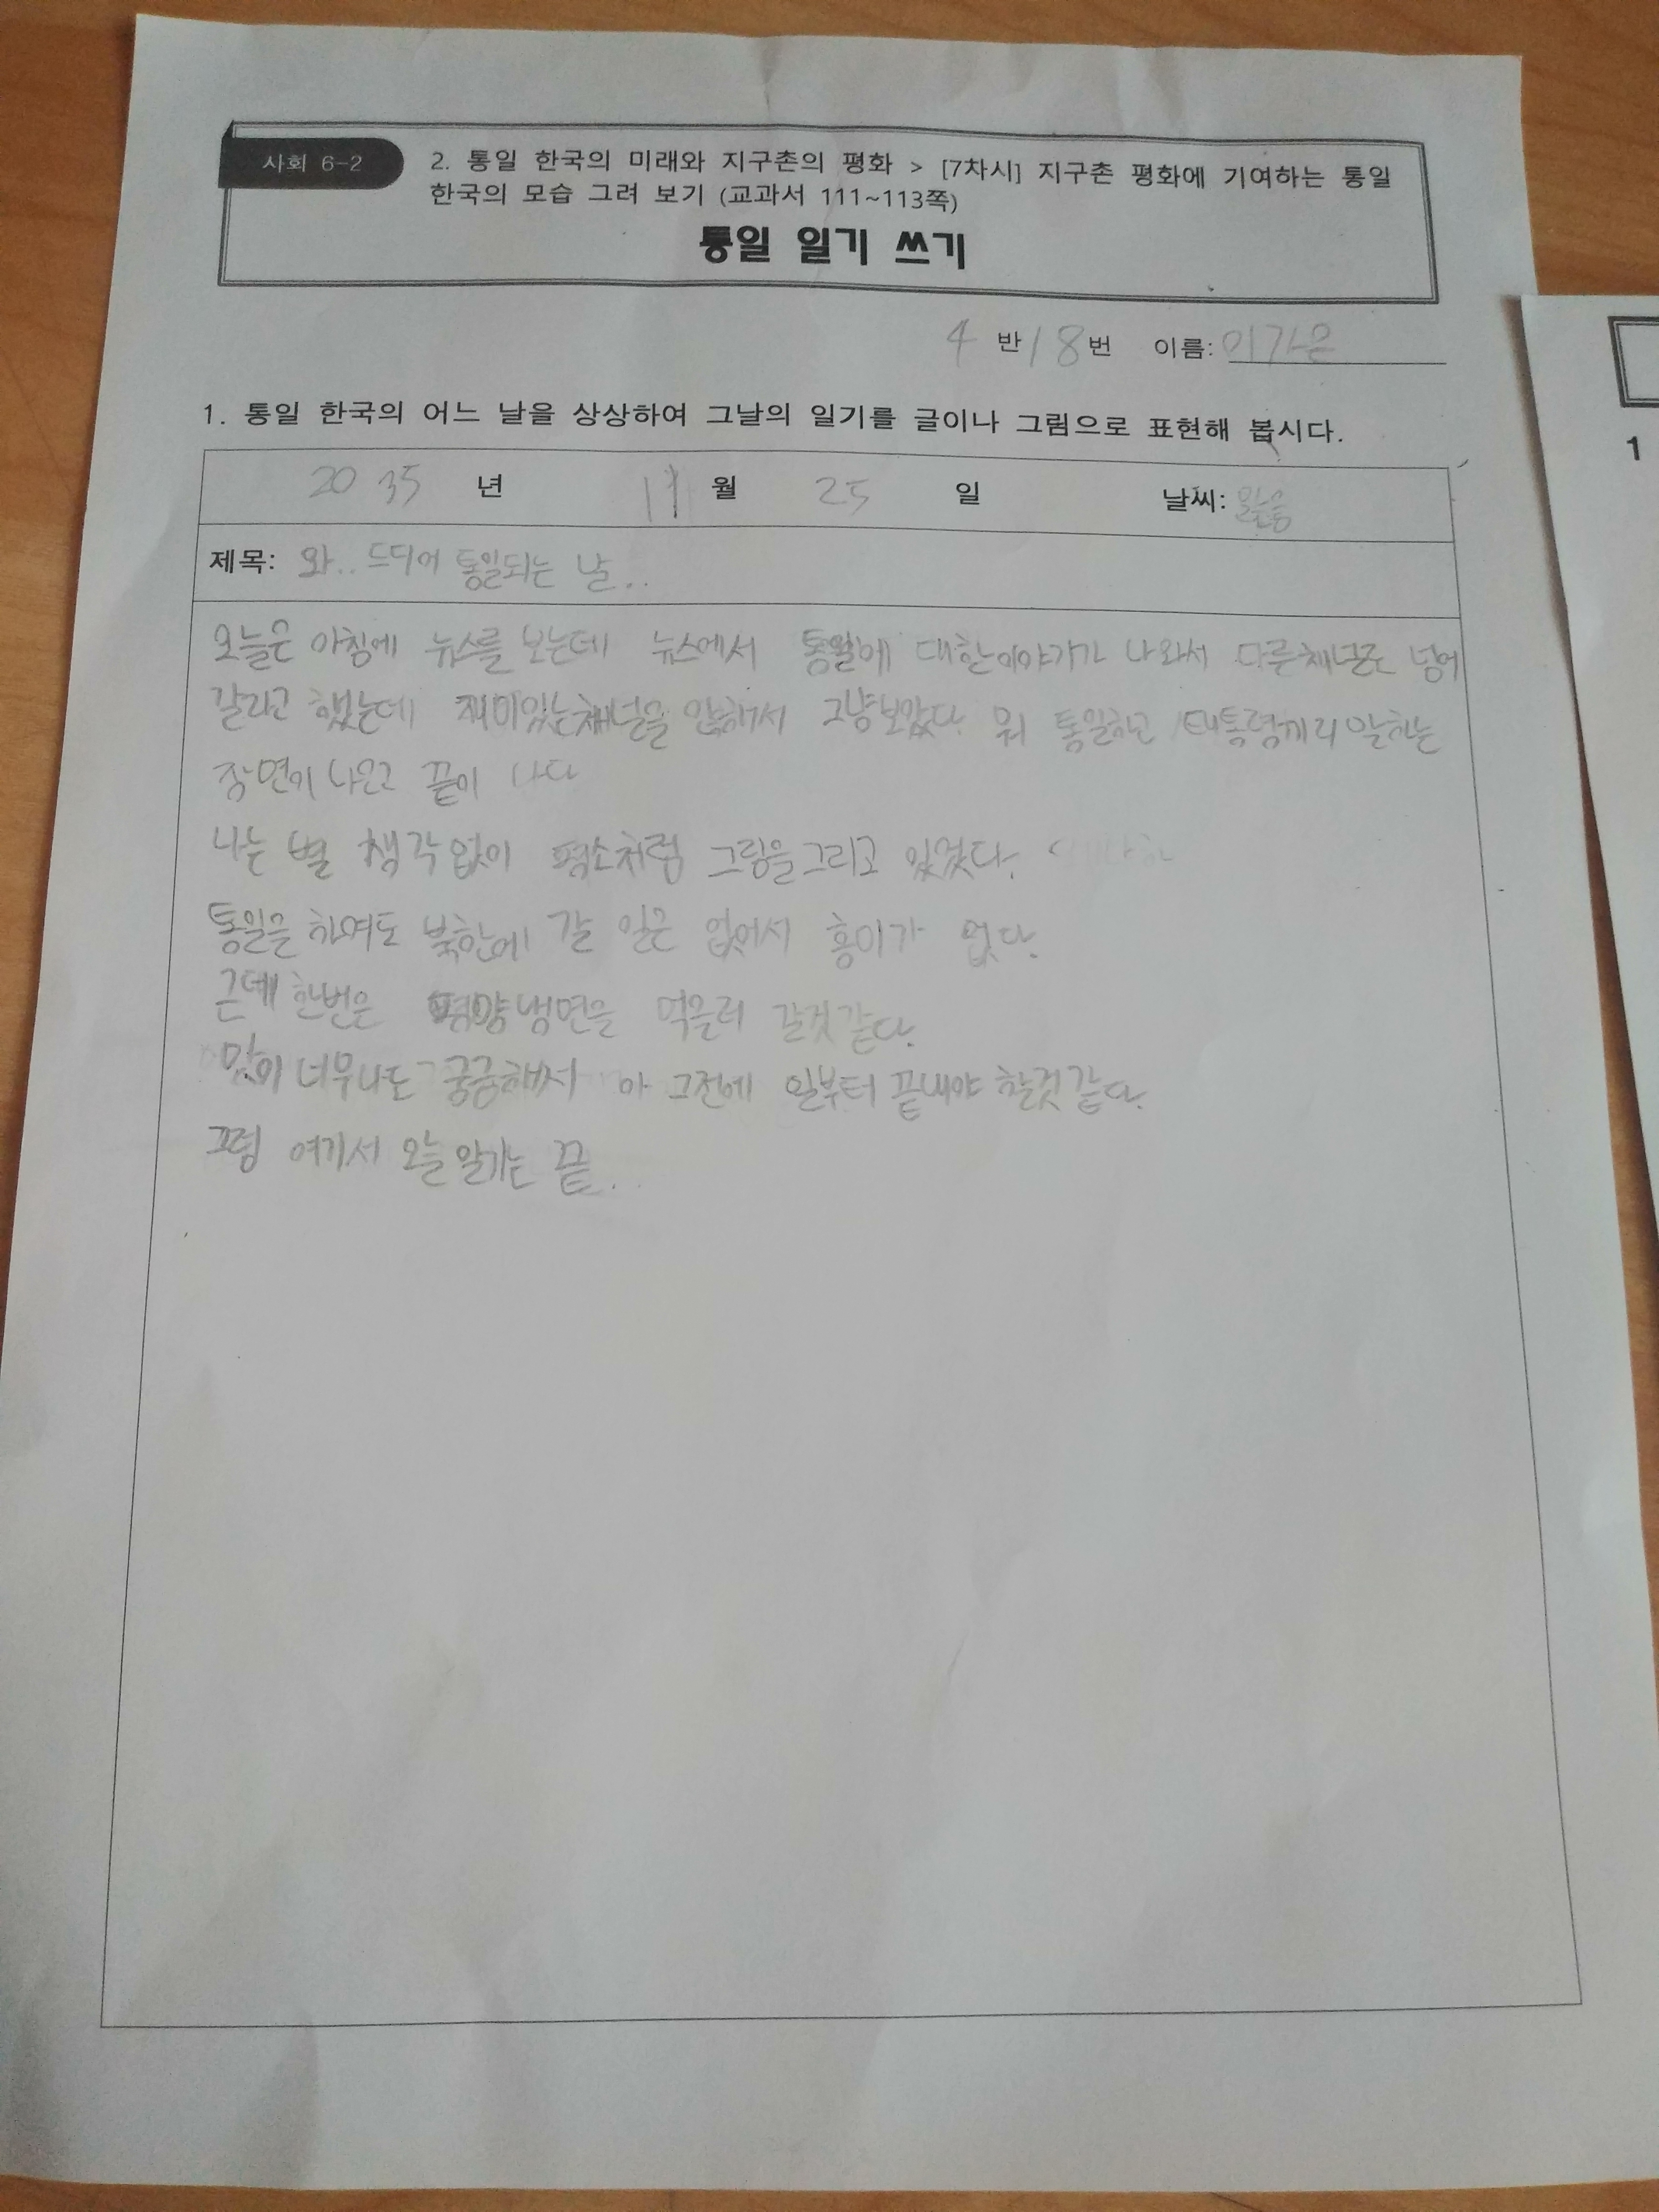 사회 6-2
2. 통일 한국의 미래와 지구촌의 평화 > [7차시] 지구촌 평화에 기여하는 통일
한국의 모습 그려 보기 (교과서 111~113쪽)
통일 일기 쓰기
4 반 18 번 이름: 이가은
1. 통일 한국의 어느 날을 상상하여 그날의 일기를 글이나 그림으로 표현해 봅시다.
2035 년 11 월 25 일 날씨: 맑음
제목: 와.. 드디어 통일되는 날..
오늘은 아침에 뉴스를 보는데 뉴스에서 통일에 대한이야기가 나와서 다른채널로 넘어
갈라고 했는데 재미있는채널을 안해서 그냥보았다. 뭐 통일하고 대통령끼리 말하는
장면이 나오고 끝이 나다
나는 별 생각없이 평소처럼 그림을그리고 있었다.
통일을 하여도 북한에 갈 일은 없어서 흥미가 없다.
근데 한번은 평양냉면을 먹을러 갈것같다.
맛이 너무나도 궁금해서 아 그전에 일부터 끝내야 할것같다.
그럼 여기서 오늘일기는 끝..
1